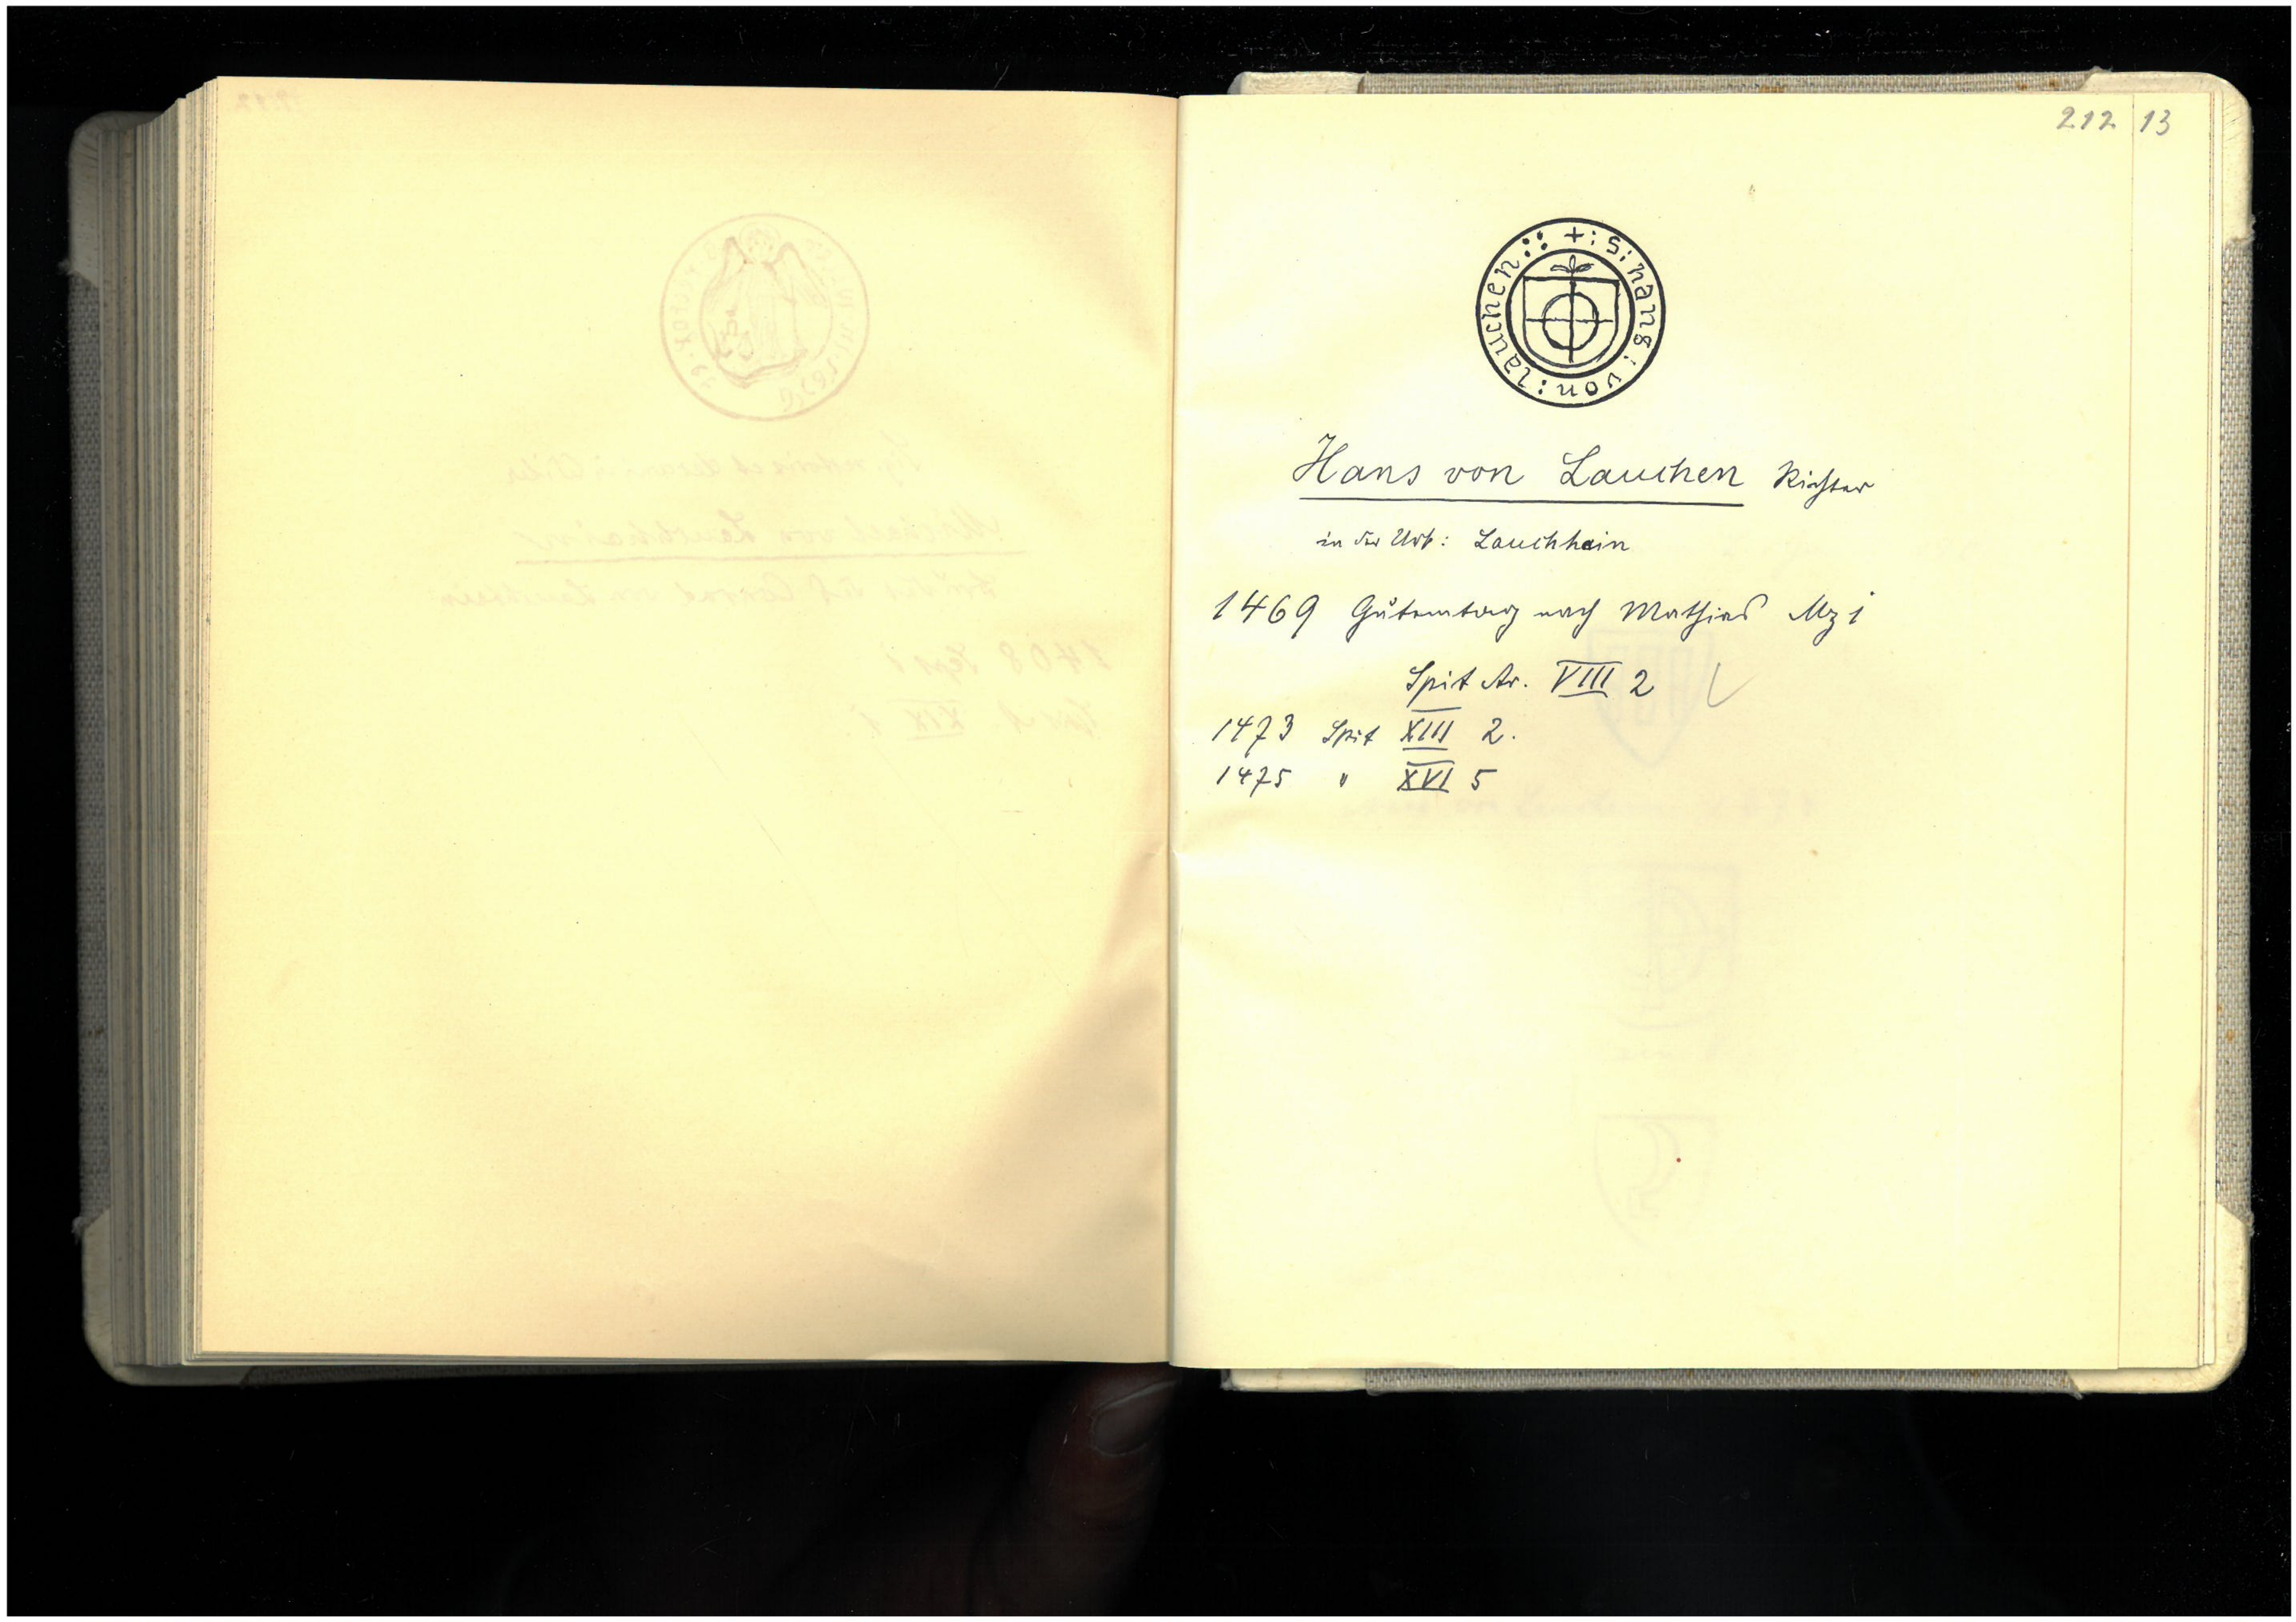 212 13
+ : s : hans : von : lauchen ::
Hans von Lauchen Richter
in der Urk: Lauchhein
1469 Gůtemtag nach Mathias
Spit Ar. VIII 2
1473 Spit XIII 2.
1475 " XVI 5